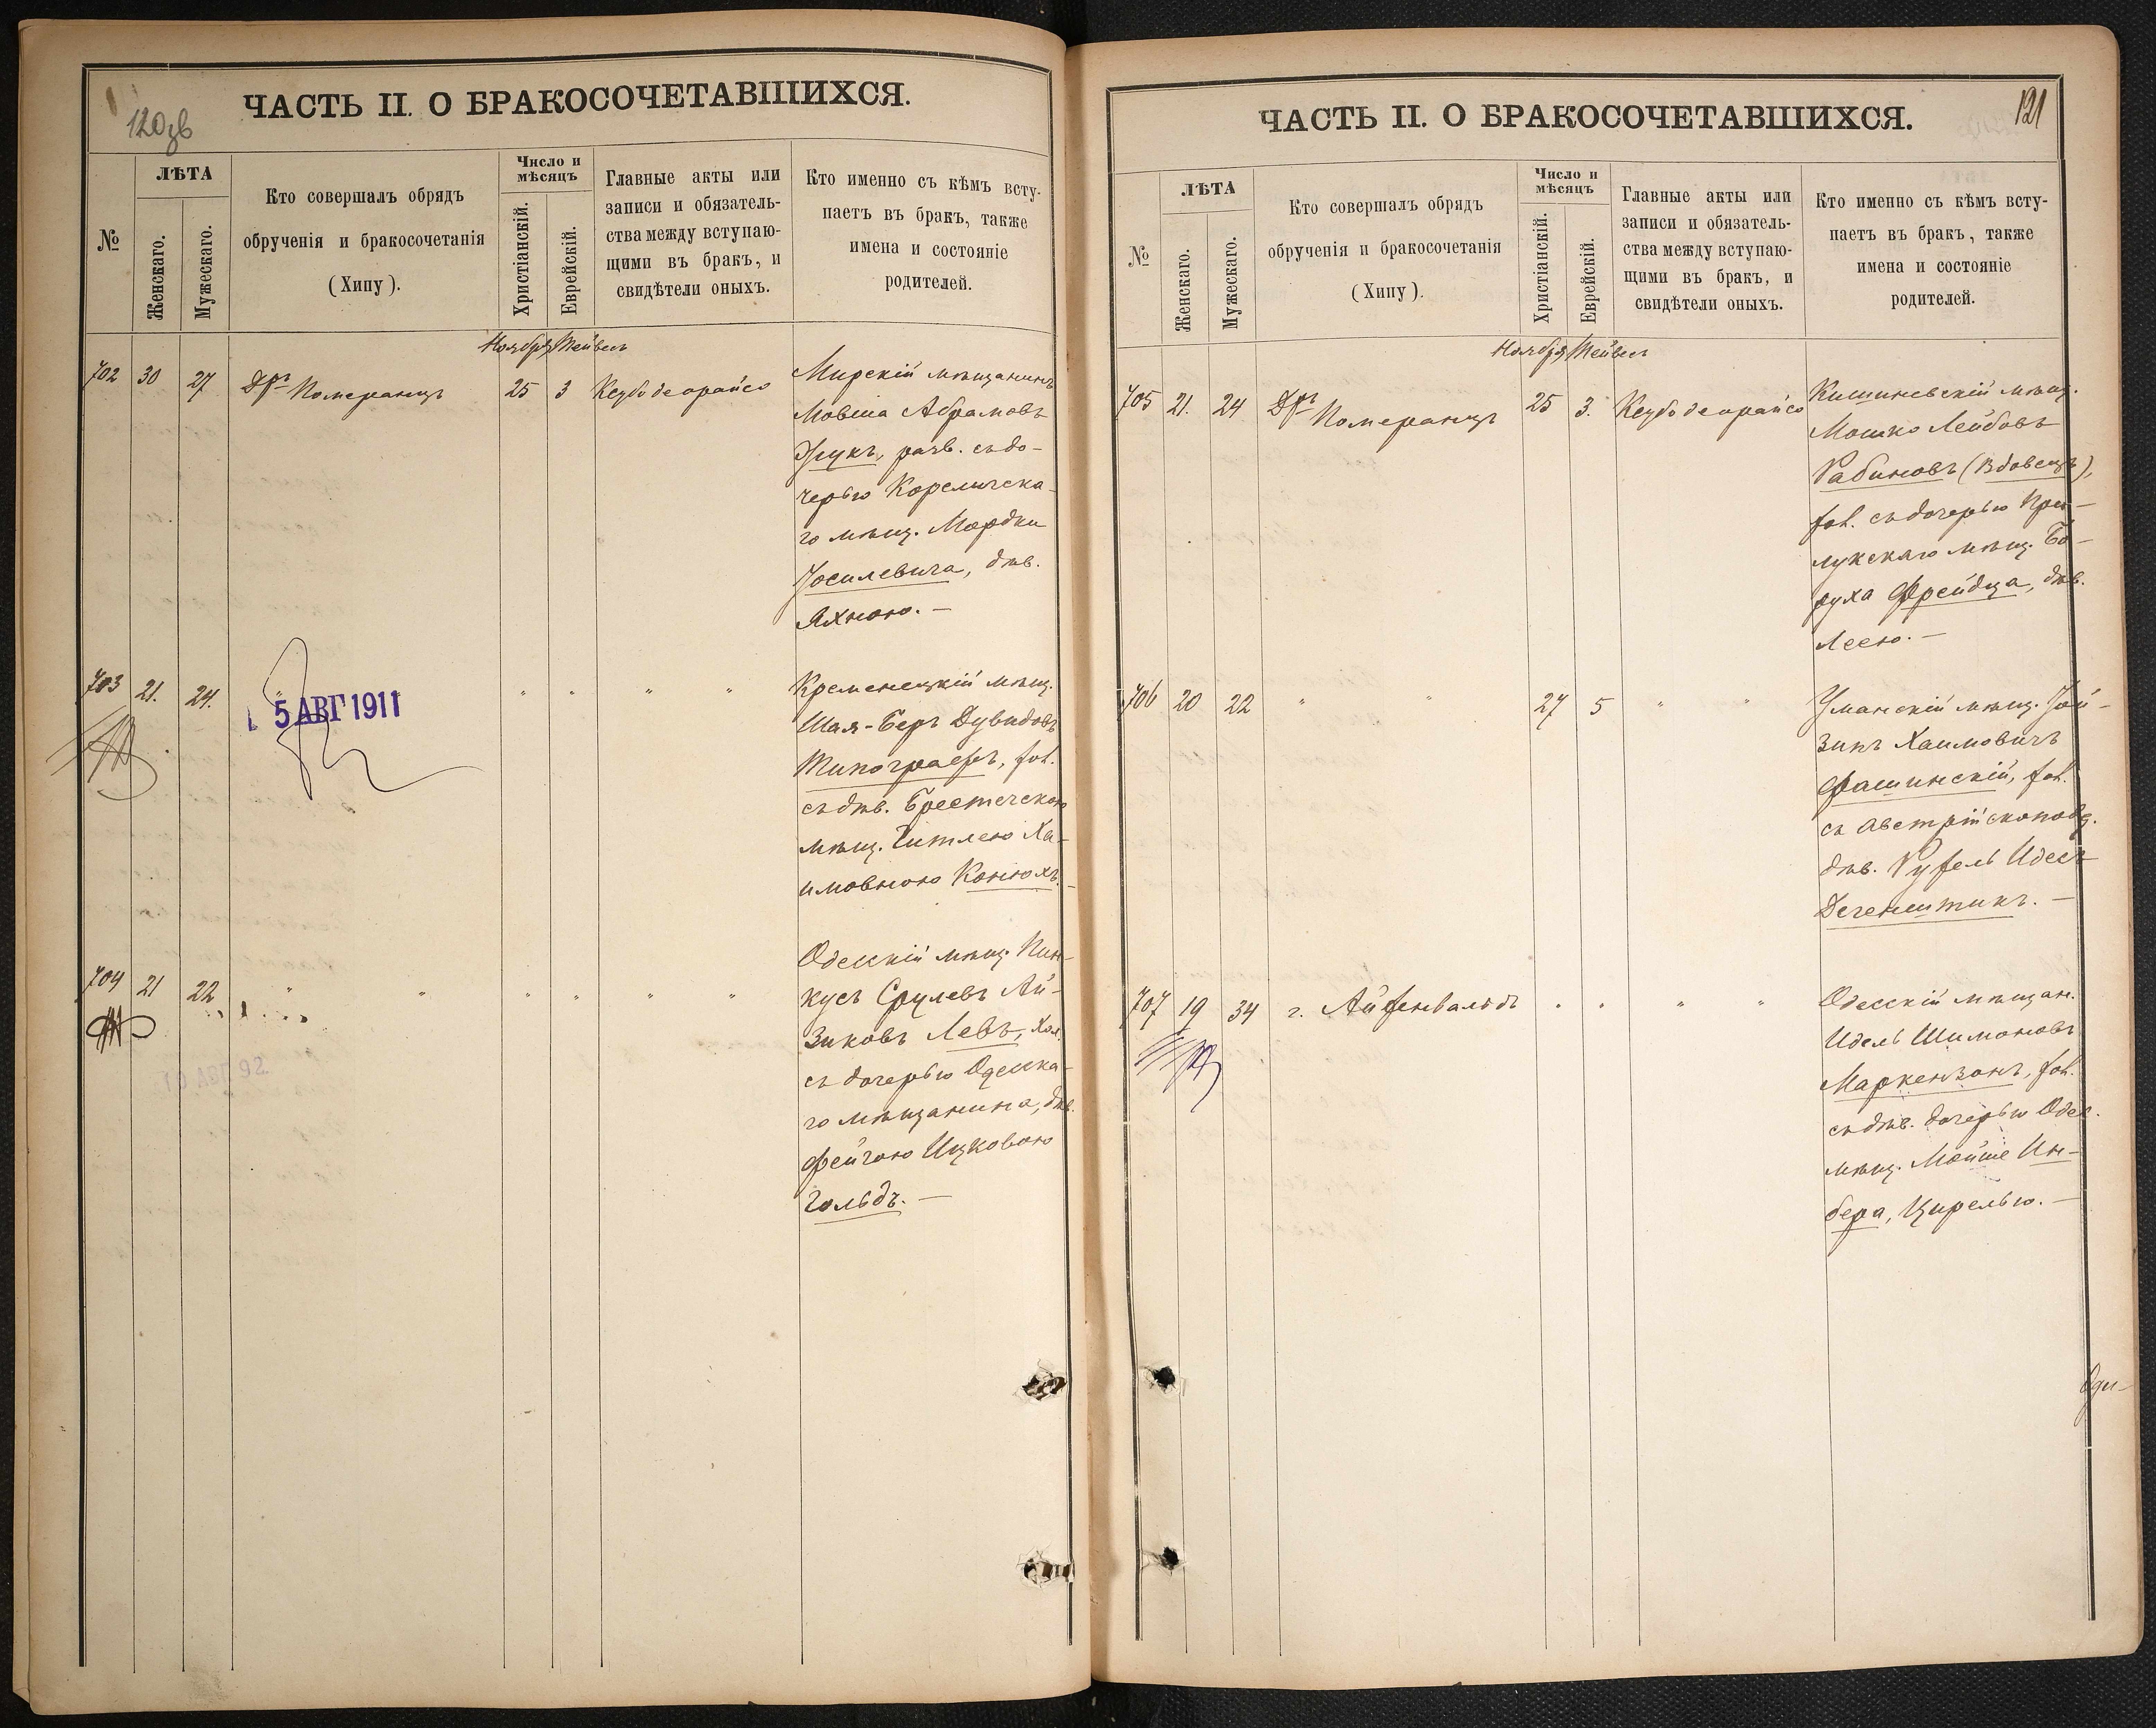 120зв
ЧАСТЬ II. О БРАКОСОЧЕТАВШИХСЯ.
№
ЛѢТА
Женскаго.
Мужескаго.
Кто совершалъ обрядъ
обрученія и бракосочетанія
(Хипу).
Число и
мѣсяцъ
Христіанскій.
Еврейскій.
Главные акты или
записи и обязатель-
ства между вступаю-
щими въ бракъ, и
свидѣтели оныхъ.
Кто именно съ кѣмъ всту-
паетъ въ бракъ, также
имена и состояніе
родителей.
Ноября Тейвеса
702 30 27 Дръ Померанцъ 25 3 Кеубо деорайсо
Мирскій мѣщанинъ
Мовша Абрамовъ
разв. съ до-
черью Кореличска-
го мѣщ. Мордки
Іоселевича, дѣв.
Яхною. —
703 21. 24. " " " " " "
5 АВГ 1911
Кременецкій мѣщ.
Шая-Беръ Дувидовъ
Типографъ, хол.
съ дѣв. Брестечскою
мѣщ. Гитлею Ха-
имовною Конюхъ. —
704 21 22 " " " " " "
Одесскій мѣщ. Пин-
кусъ Срулевъ Ай-
зиковъ Левъ, хол.
съ дочерью Одесска-
го мѣщанина, дѣв.
Фейгою Ицковою
Гольдъ. —
121
ЧАСТЬ II. О БРАКОСОЧЕТАВШИХСЯ.
№
ЛѢТА
Женскаго.
Мужескаго.
Кто совершалъ обрядъ
обрученія и бракосочетанія
(Хипу).
Число и
мѣсяцъ
Христіанскій.
Еврейскій.
Главные акты или
записи и обязатель-
ства между вступаю-
щими въ бракъ, и
свидѣтели оныхъ.
Кто именно съ кѣмъ всту-
паетъ въ бракъ, также
имена и состояніе
родителей.
Ноября Тейвеса
705 21. 24 Дръ Померанцъ 25 3. Кеубо деорайсо
Кишиневскій мѣщ.
Мошко Лейбовъ
Рабиновъ (вдовецъ),
хол. съ дочерью При-
лукскаго мѣщ. Бо-
руха Фрейдца, дѣв.
Леею. —
706 20 22 " " 27 5 " "
Уманскій мѣщ. Іой-
зипъ Хаимовичъ
Фашинскій, хол.
съ Австрійскоподд.
дѣв. Рухель Идесъ
Дегенштикъ. —
707 19 34 г. Айхенвальдъ " " " "
Одесскій мѣщан.
Идель Шимоновъ
Маркензонъ, хол.
съ дѣв. дочерью Одес.
мѣщ. Мойше Ин-
бера, Цирелью. —
Оди-